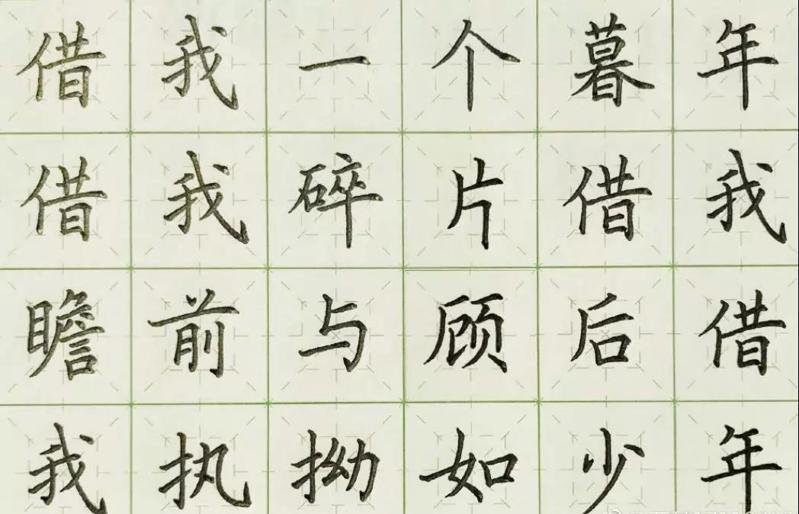 借我一个暮年
借我碎片借我
瞻前与顾后借
我执拗如少年